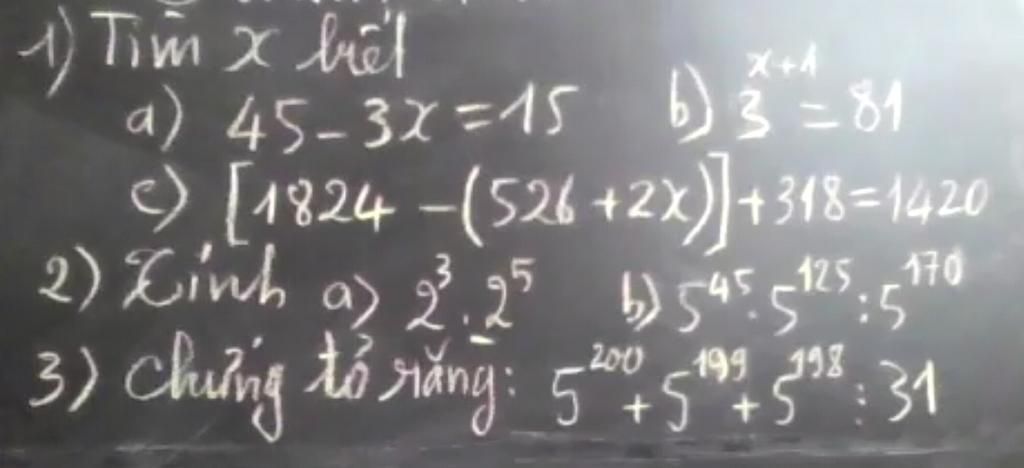 1) Tìm x biết
a) 45 - 3x = 15 b) 3^{x+1} = 81
c) [1824 - (526 + 2x)] + 318 = 1420
2) Tính a) 2^3 . 2^5 b) 5^{45} . 5^{125} : 5^{170}
3) Chứng tỏ rằng: 5^{200} + 5^{199} + 5^{198} ⋮ 31